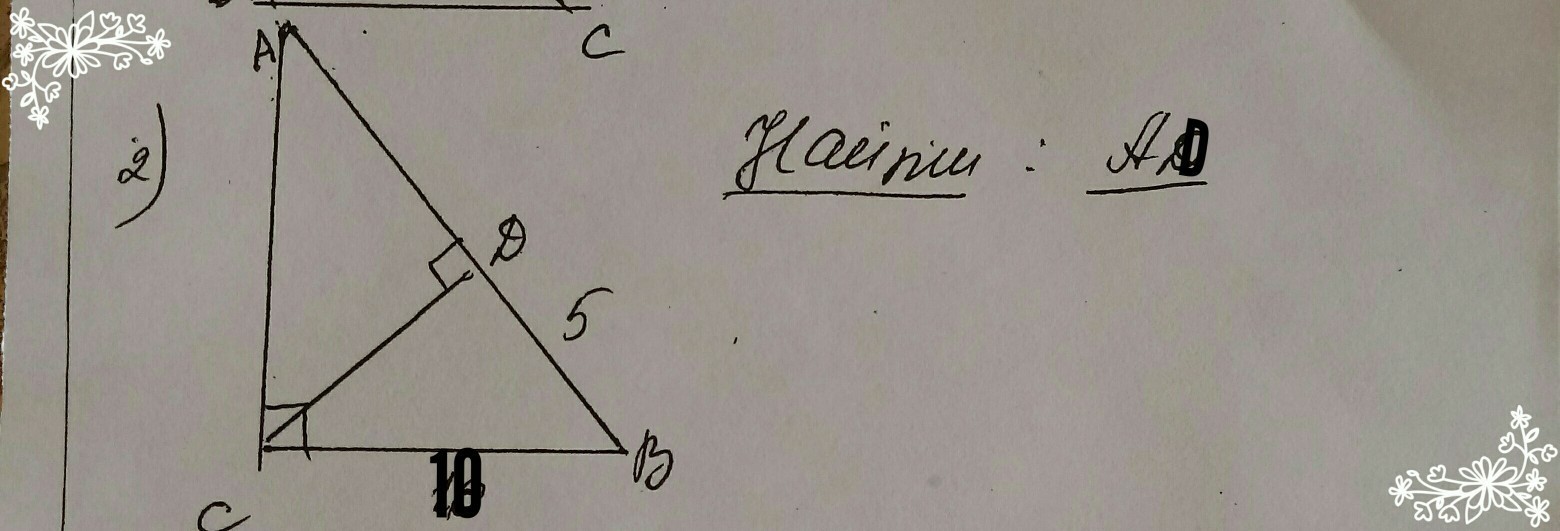 C
A
2)
Найти: AD
D
5
10
B
C